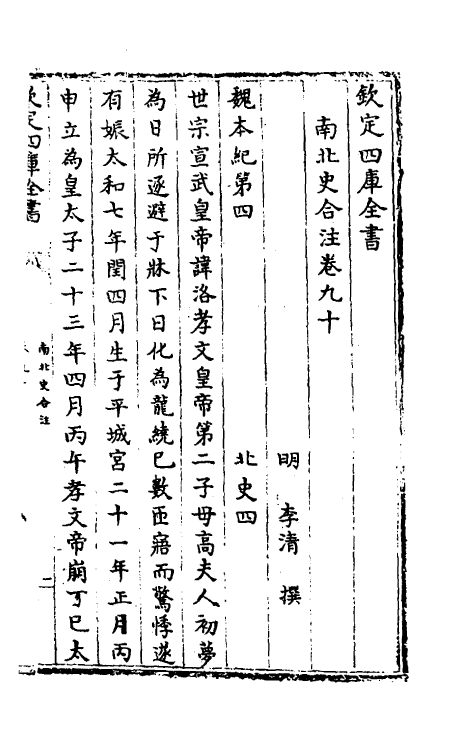 欽定四庫全書
南北史合注卷九十
明 李清 撰
魏本紀第四 北史四
世宗宣武皇帝諱洛孝文皇帝第二子母高夫人初夢
為日所逐避于牀下日化為龍繞己數匝寤而驚悸遂
有娠太和七年閏四月生于平城宮二十一年正月丙
申立為皇太子二十三年四月丙午孝文帝崩丁巳太
欽定四庫全書
南北史合注